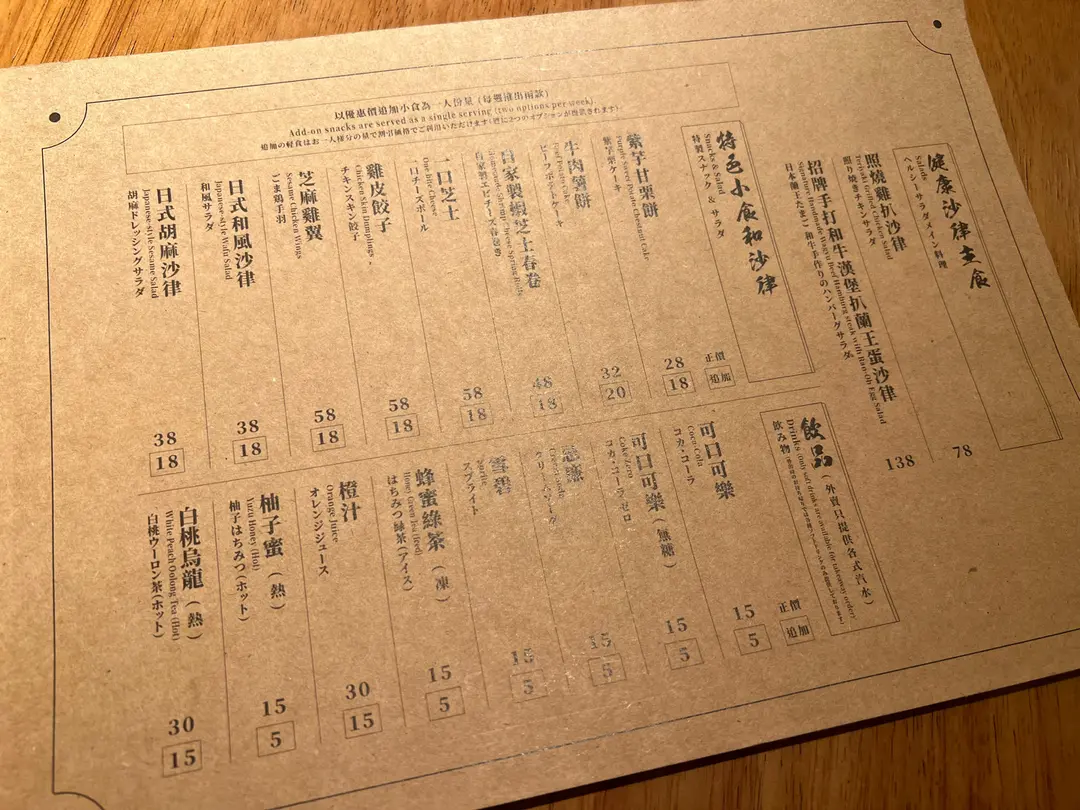 健康沙律主食
Salads
ヘルシーサラダメイン料理
照燒雞扒沙律
Teriyaki Grilled Chicken Salad
照り焼きチキンサラダ
78
招牌手打和牛漢堡扒蘭王蛋沙律
Signature Handmade Wagyu Beef Hamburg steak with Ran-Oh Egg Salad
日本蘭王たまご 和牛手作りのハンバーグサラダ
138
以優惠價追加小食為一人份量 (每週推出兩款)
Add-on snacks are served as a single serving (two options per week)
追加の軽食はお一人様分の量で割引価格でご利用いただけます(週に2つのオプションが提供されます)
特色小食和沙律
Snacks & Salad
特製スナック & サラダ
正價
追加
紫芋甘栗餅
Purple Sweet Potato Chestnut Cake
紫芋栗ケーキ
28
18
牛肉薯餅
Beef Potato Cake
ビーフポテトケーキ
32
20
自家製蝦芝士春卷
Homemade Shrimp Cheese Spring Rolls
自家製エビチーズ春巻き
48
18
一口芝士
One Bite Cheese
一口チーズボール
58
18
雞皮餃子
Chicken Skin Dumplings
チキンスキン餃子
58
18
芝麻雞翼
Sesame Chicken Wings
ごま鶏手羽
58
18
日式和風沙律
Japanese-style Wafu Salad
和風サラダ
38
18
日式胡麻沙律
Japanese-style Sesame Salad
胡麻ドレッシングサラダ
38
18
飲品 (外賣只提供各式汽水)
Drinks (only soft drinks are available for takeaway orders)
飲み物
正價
追加
可口可樂
Coca Cola
コカ・コーラ
15
5
可口可樂 (無糖)
Coke Zero
コカ・コーラ ゼロ
15
5
忌廉
Cream Soda
クリームソーダ
15
5
雪碧
Sprite
スプライト
15
5
蜂蜜綠茶 (凍)
Honey Green Tea (Iced)
はちみつ緑茶(アイス)
15
5
橙汁
Orange Juice
オレンジジュース
30
15
柚子蜜 (熱)
Yuzu Honey (Hot)
柚子はちみつ(ホット)
15
5
白桃烏龍 (熱)
White Peach Oolong Tea (Hot)
白桃ウーロン茶(ホット)
30
15